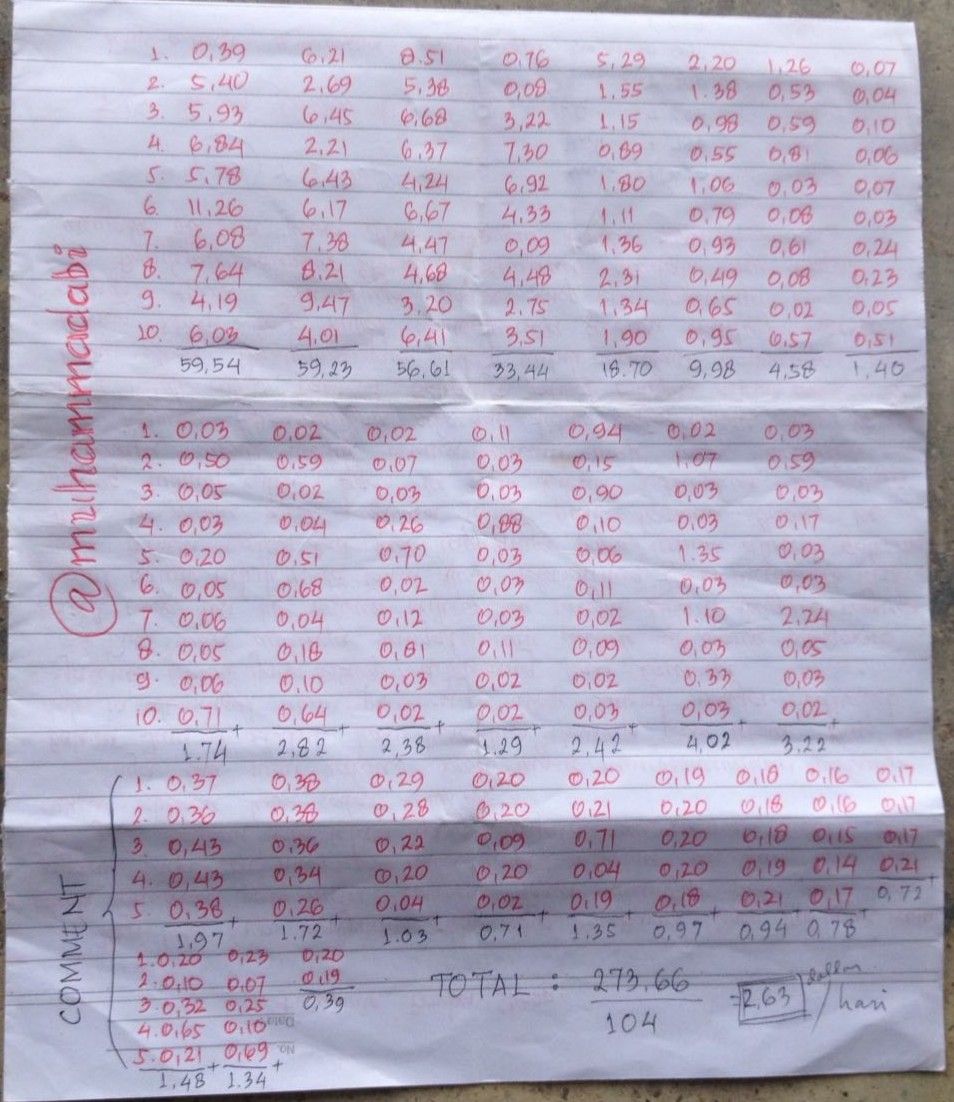 @muhammadabi
1. 0,39 6,21 8.51 0,76 5,29 2,20 1,26 0,07
2. 5,40 2,69 5,38 0,08 1.55 1.38 0,53 0,04
3. 5,93 6,45 6,68 3,22 1,15 0,98 0,59 0,10
4. 6,84 2,21 6,37 7,30 0,89 0,55 0,81 0,06
5. 5,78 6,43 4,24 6,92 1,80 1,06 0,03 0,07
6. 11,26 6,17 6,67 4.33 1,11 0,79 0,08 0,03
7. 6,08 7,38 4,47 0,09 1.36 0,93 0,61 0,24
8. 7,64 8.21 4,68 4,48 2,31 0,49 0,08 0,23
9. 4,19 9,47 3,20 2,75 1.34 0,65 0,02 0,05
10. 6,03 4,01 6,41 3,51 1,90 0,95 0,57 0,51
59,54 59,23 56,61 33,44 18.70 9,98 4,58 1,40
1. 0,03 0,02 0,02 0,11 0,94 0,02 0,03
2. 0,50 0,59 0,07 0,03 0,15 1.07 0,59
3. 0,05 0,02 0,03 0,03 0,90 0,03 0,03
4. 0,03 0,04 0,26 0,88 0,10 0,03 0,17
5. 0,20 0,51 0,70 0,03 0,06 1.35 0,03
6. 0,05 0,68 0,02 0,03 0,11 0,03 0,03
7. 0,06 0,04 0,12 0,03 0,02 1.10 2,24
8. 0,05 0,18 0,81 0,11 0,09 0,03 0,05
9. 0,06 0,10 0,03 0,02 0,02 0,33 0,03
10. 0,71 + 0,64 + 0,02 + 0,02 + 0,03 + 0,03 + 0,02 +
1.74 2,82 2,38 1.29 2,42 4,02 3.22
COMMENT
1. 0,37 0,38 0,29 0,20 0,20 0,19 0,18 0,16 0,17
2. 0,36 0,38 0,28 0,20 0,21 0,20 0,18 0,16 0,17
3. 0,43 0,36 0,22 0,09 0,71 0,20 0,18 0,15 0,17
4. 0,43 0,34 0,20 0,20 0,04 0,20 0,19 0,14 0,21 +
5. 0,38 + 0,26 + 0,04 + 0,02 + 0,19 + 0,18 + 0,21 + 0,17 + 0,72
1,97 1.72 1.03 0,71 1.35 0,97 0,94 0,78
1. 0,20 0,23 0,20
2. 0,10 0,07 0,19
3. 0,32 0,25 0,39
4. 0,65 0,10
5. 0,21 + 0,69 +
1,48 1.34
TOTAL : 273,66
104
= 2,63 dollar / hari
Date
No.